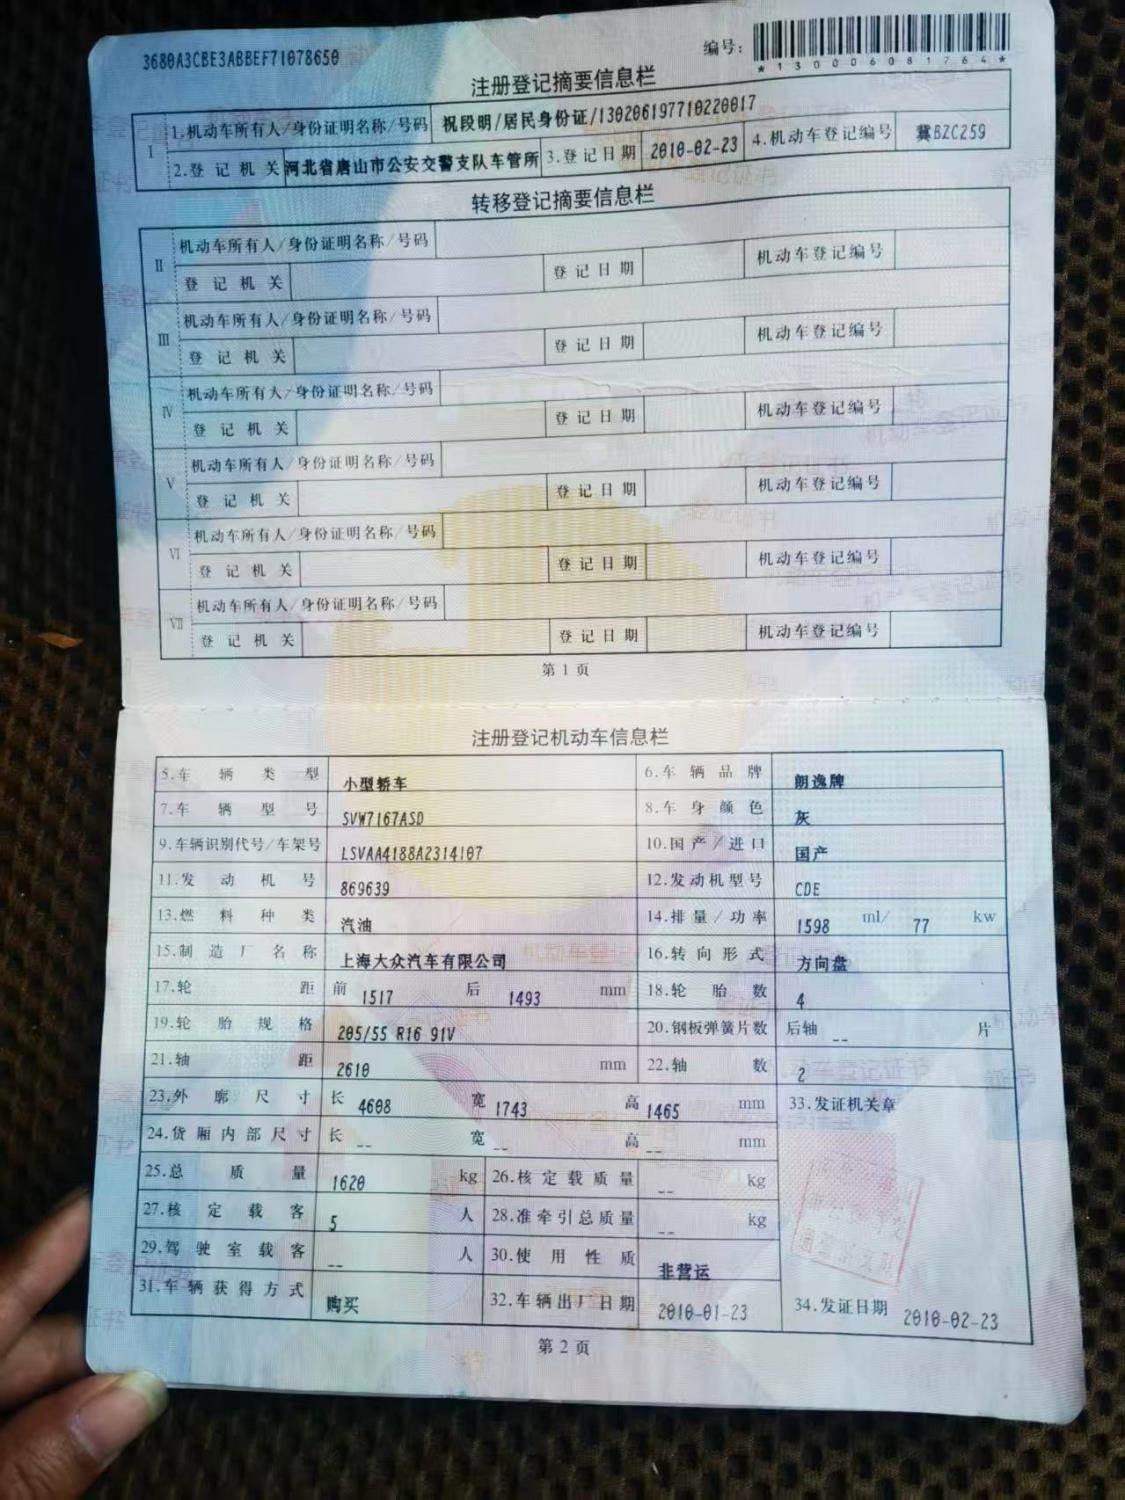 3680A3CBE3ABBEF71078650
编号:
*130006081764*
注册登记摘要信息栏
I 1.机动车所有人/身份证明名称/号码 祝段明/居民身份证/130206197710220017
2.登记机关 河北省唐山市公安交警支队车管所 3.登记日期 2010-02-23 4.机动车登记编号 冀BZC259
转移登记摘要信息栏
II 机动车所有人/身份证明名称/号码
登记机关 登记日期 机动车登记编号
III 机动车所有人/身份证明名称/号码
登记机关 登记日期 机动车登记编号
IV 机动车所有人/身份证明名称/号码
登记机关 登记日期 机动车登记编号
V 机动车所有人/身份证明名称/号码
登记机关 登记日期 机动车登记编号
VI 机动车所有人/身份证明名称/号码
登记机关 登记日期 机动车登记编号
VII 机动车所有人/身份证明名称/号码
登记机关 登记日期 机动车登记编号
第1页
注册登记机动车信息栏
5.车辆类型 小型轿车 6.车辆品牌 朗逸牌
7.车辆型号 SVW7167ASD 8.车身颜色 灰
9.车辆识别代号/车架号 LSVAA4188A2314107 10.国产/进口 国产
11.发动机号 869639 12.发动机型号 CDE
13.燃料种类 汽油 14.排量/功率 1598 ml/ 77 kw
15.制造厂名称 上海大众汽车有限公司 16.转向形式 方向盘
17.轮距 前 1517 后 1493 mm 18.轮胎数 4
19.轮胎规格 205/55 R16 91V 20.钢板弹簧片数 后轴 -- 片
21.轴距 2610 mm 22.轴数 2
23.外廓尺寸 长 4608 宽 1743 高 1465 mm 33.发证机关章
24.货厢内部尺寸 长 -- 宽 -- 高 -- mm
25.总质量 1620 kg 26.核定载质量 -- kg
27.核定载客 5 人 28.准牵引总质量 -- kg
29.驾驶室载客 -- 人 30.使用性质 非营运
31.车辆获得方式 购买 32.车辆出厂日期 2010-01-23 34.发证日期 2010-02-23
第2页